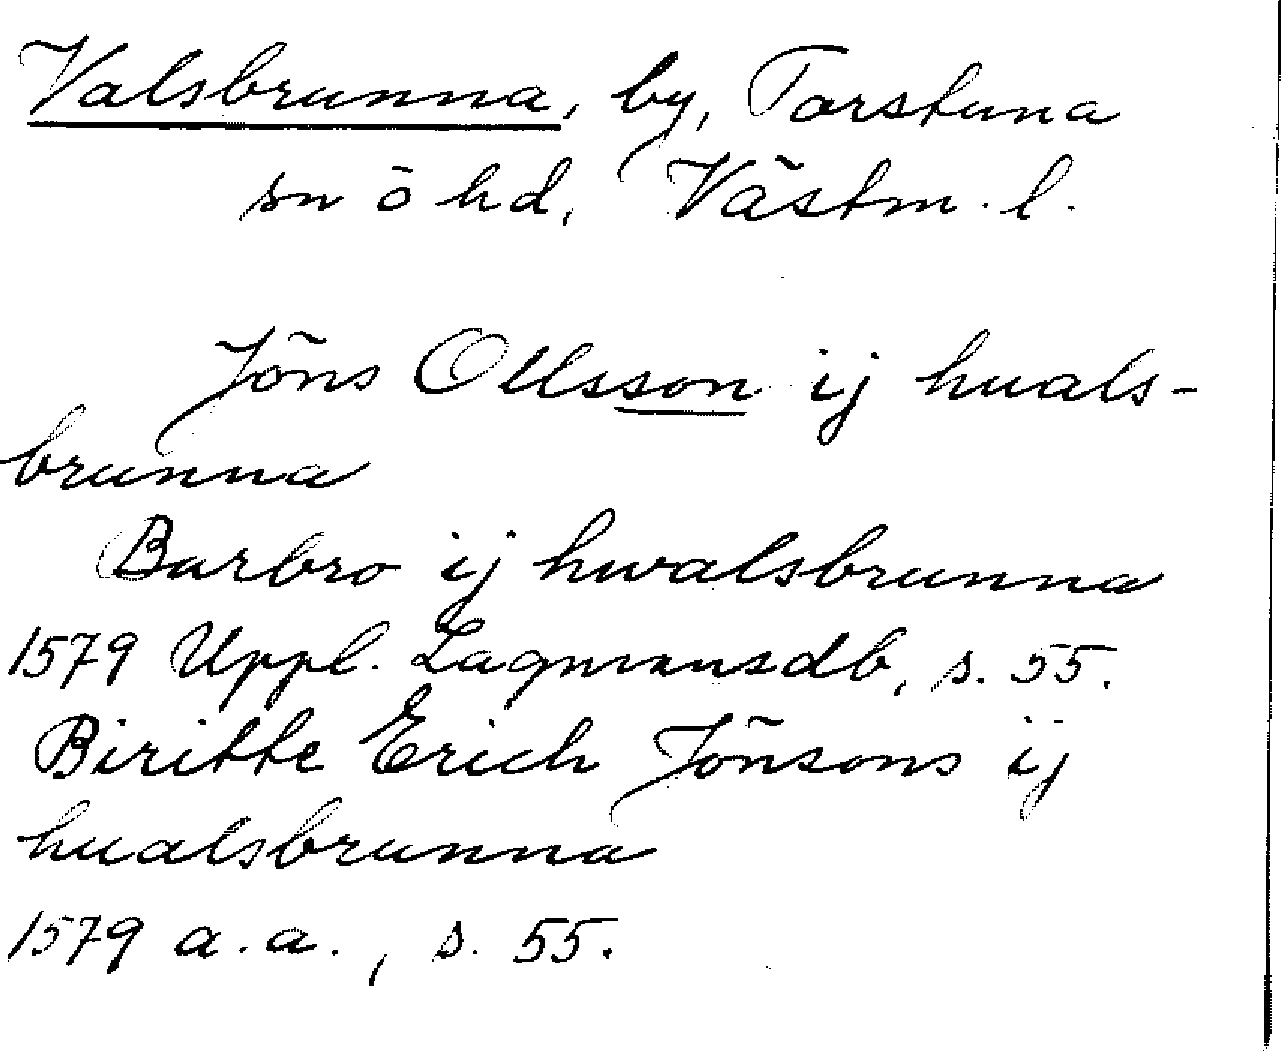 Valsbrunna, by, Torstuna
sn o hd, Västm. l.
Jöns Ollsson ij huals-
brunna
Barbro ij hwalsbrunna
1579 Uppl. Lagmansdb, s. 55.
Biritte Erich Jönsons ij
hualsbrunna
1579 a.a., s. 55.